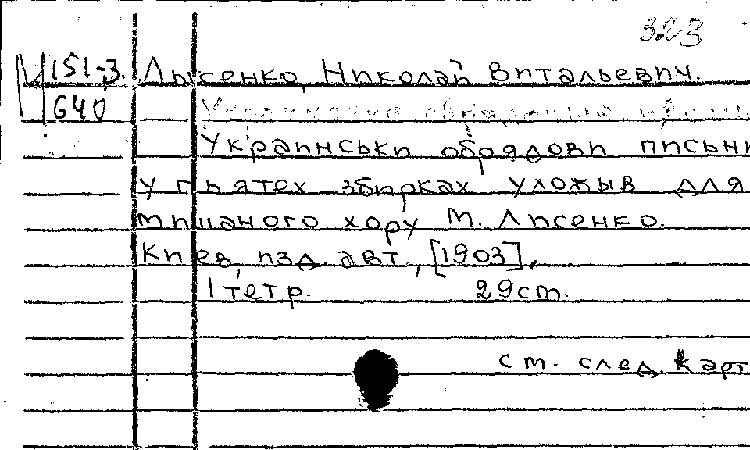 323
151-3 Лысенко, Николай Витальевич.
640
Украинськи обрядови писни
у пьятех збирках уложыв для
мишаного хору М. Лисенко.
Киев, изд. авт., [1903].
1 тетр. 29 cm.
см. след. карт